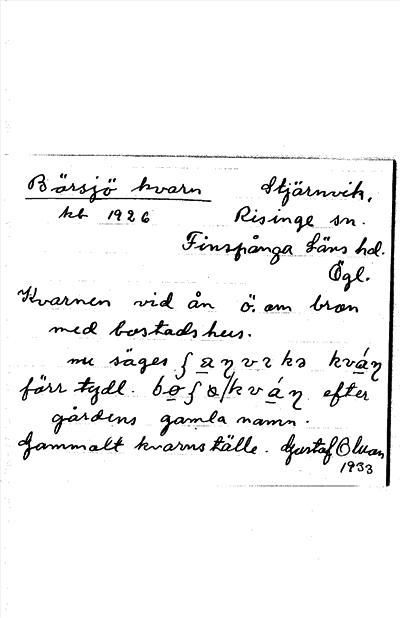 Bärsjö kvarn Stjärnvik,
kb 1926 Risinge sn.
Finspånga Läns hd.
Ögl.
Kvarnen vid ån ö. om bron
med bostadshus.
nu säges kván
förr tydl. efter
gårdens gamla namn.
Gammalt kvarnställe. Gustaf Olsson
1933